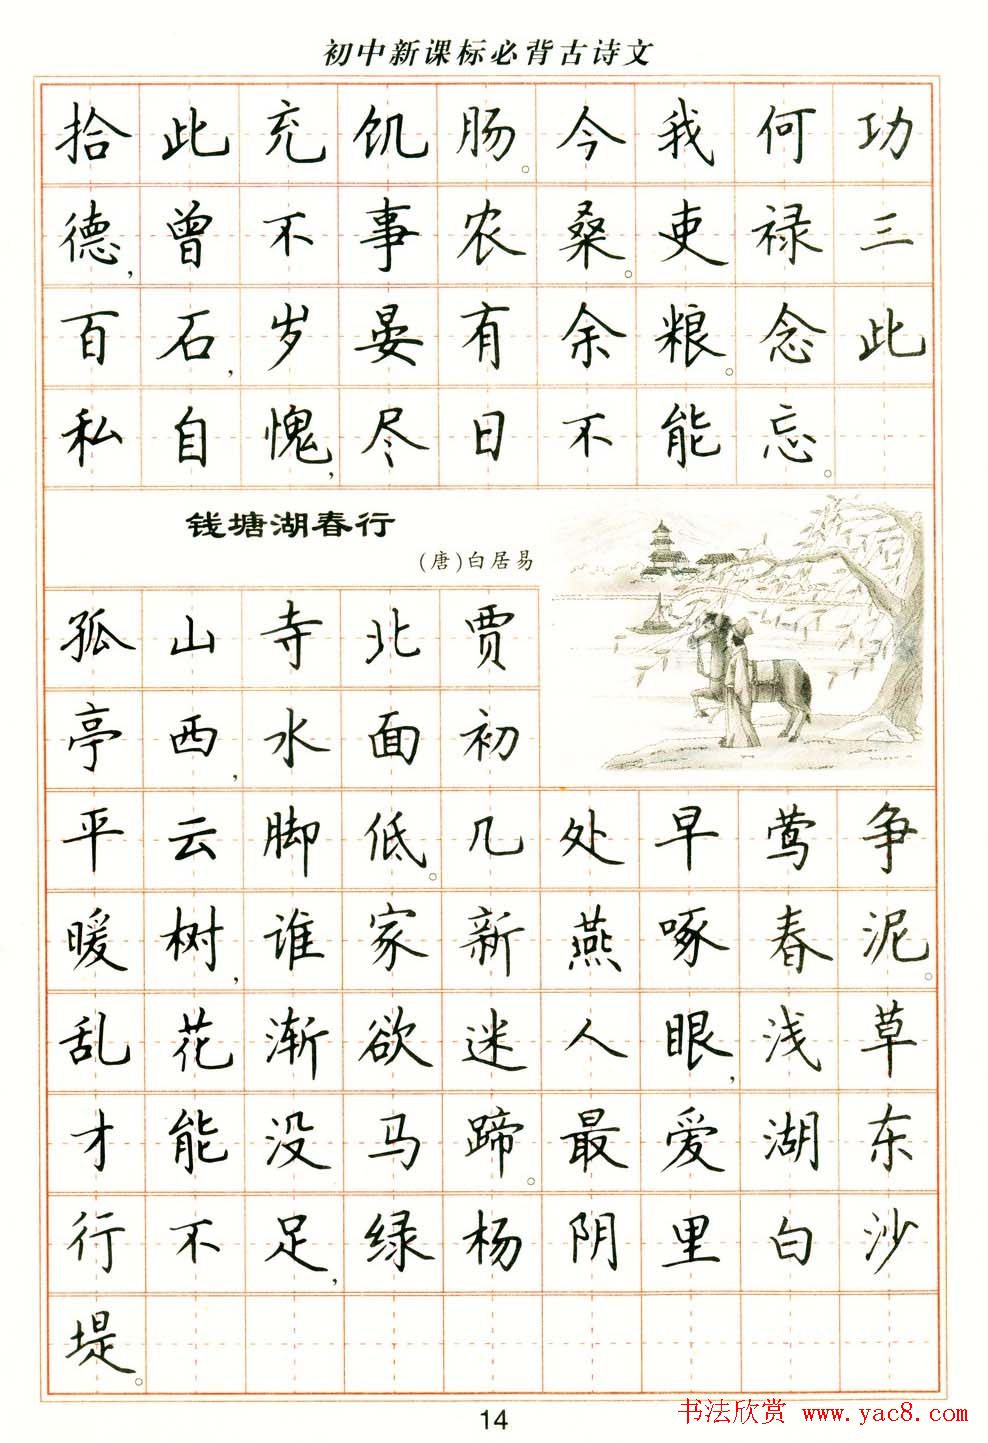 初中新课标必背古诗文
拾此充饥肠。今我何功
德,曾不事农桑。吏禄三
百石,岁晏有余粮。念此
私自愧,尽日不能忘。
钱塘湖春行
(唐)白居易
孤山寺北贾
亭西,水面初
平云脚低。几处早莺争
暖树,谁家新燕啄春泥。
乱花渐欲迷人眼,浅草
才能没马蹄。最爱湖东
行不足,绿杨阴里白沙
堤。
14
书法欣赏 www.yac8.com